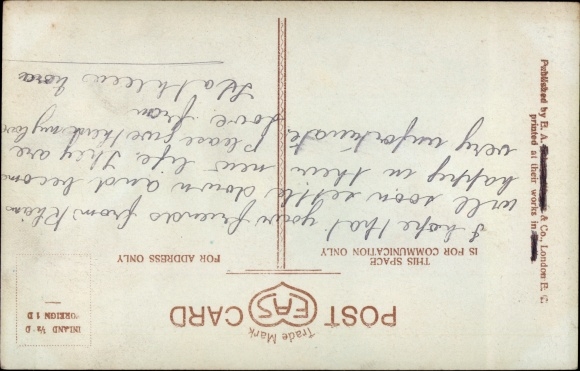 POST CARD
Trade Mark
EAS
THIS SPACE
IS FOR COMMUNICATION ONLY
FOR ADDRESS ONLY
INLAND ½ D
FOREIGN 1 D
I hope that your friends from
will soon settle down and become
happy in their new life. They are
very unfortunate. Please give them my love
Love from
Kathleen
Published by E. A. & Co., London E. C.
printed at their works in